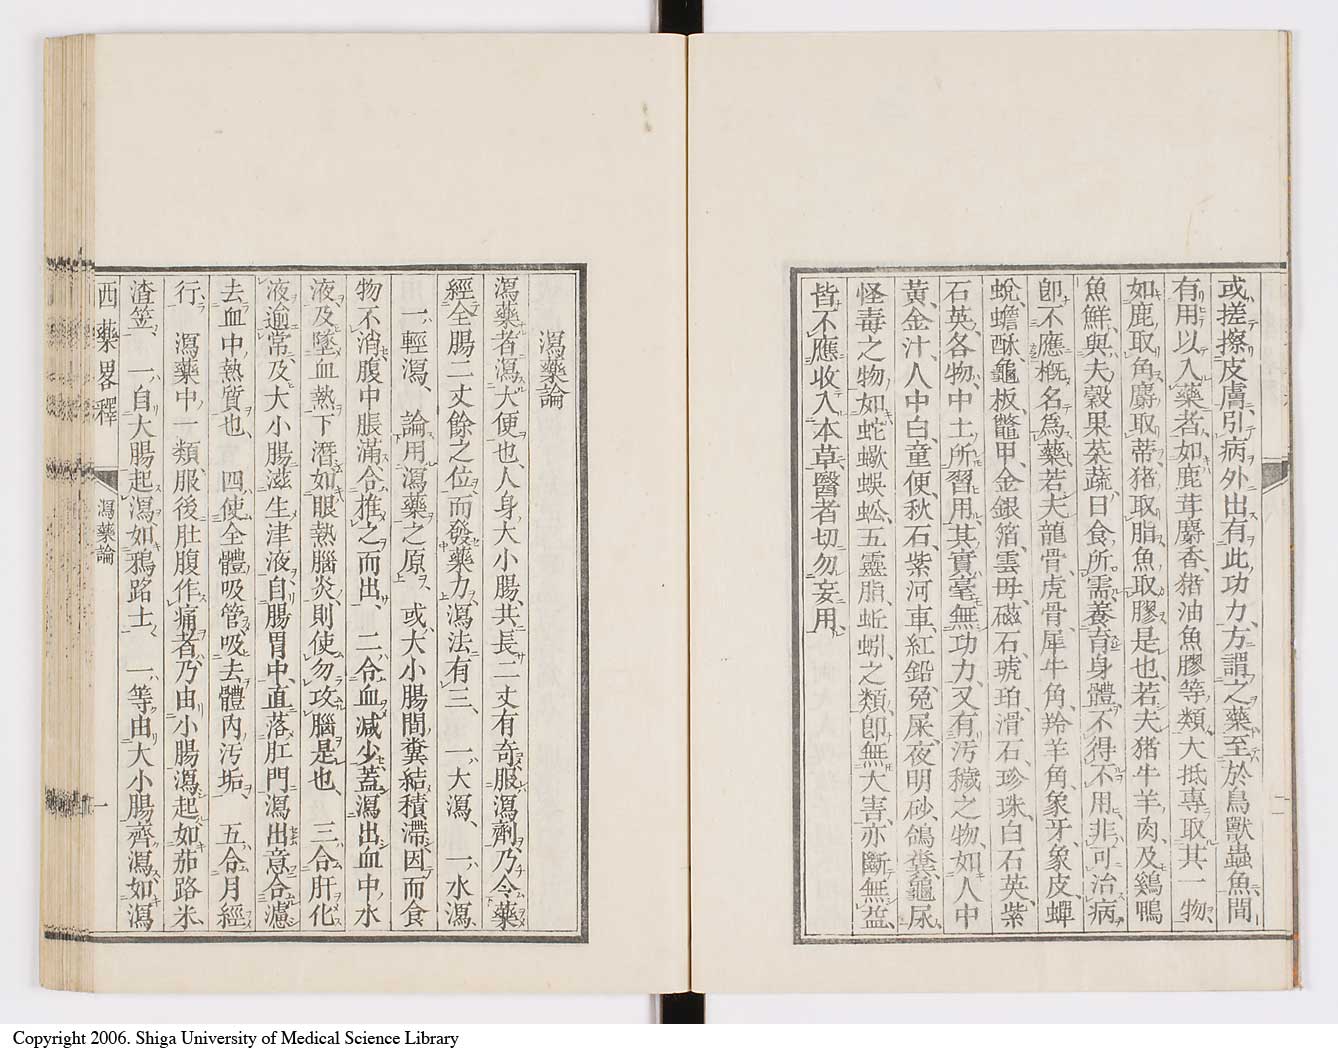 或搓擦皮膚、引病外出、有此功力、方謂之藥、至於鳥獸蟲魚、間
有用以入藥者、如鹿茸麝香、猪油魚膠等類、大抵專取其一物、
如鹿取角、麝取蒂、猪取脂、魚取膠是也、若夫猪牛羊肉、及鷄鴨
魚鮮、與夫穀果菜蔬、日食所需、養育身體、不得不用、非可治病、
卽不應槪名爲藥、若夫龍骨、虎骨、犀牛角、羚羊角、象牙、象皮、蟬
蛻、蟾酥、龜板、鼈甲、金銀箔、雲母、磁石、琥珀、滑石、珍珠、白石英、紫
石英、各物、中土所習用、其實毫無功力、又有汚穢之物、如人中
黃、金汁、人中白、童便、秋石、紫河車、紅鉛、兔屎、夜明砂、鴿糞、龜尿、
怪毒之物、如蛇蠍蜈蚣、五靈脂、蚯蚓、之類、卽無大害、亦斷無益、
皆不應收入本草、醫者切勿妄用、
瀉藥論
瀉藥者、瀉大便也、人身大小腸、共長二丈有奇、服瀉劑、乃令藥
經全腸二丈餘之位、而發藥力、瀉法有三、一大瀉、一水瀉、
一輕瀉、論用瀉藥之原、或大小腸間、糞結積滯、因而食
物不消、腹中脹滿、合推之而出、二令血減少、蓋瀉出血中水
液、及墜血熱下潛、如眼熱腦炎、則使勿攻腦是也、三合肝化
液逾常、及大小腸滋生津液、自腸胃中、直落肛門、瀉出、意合濾
去血中熱質也、四使全體吸管、吸去體內汚垢、五合月經
行、瀉藥中一類、服後肚腹作痛者、乃由小腸瀉起、如茄路米、
渣笠、一自大腸起瀉、如鴉路士、一等由大小腸齊瀉、如瀉
西藥畧釋
瀉藥論
一
Copyright 2006. Shiga University of Medical Science Library